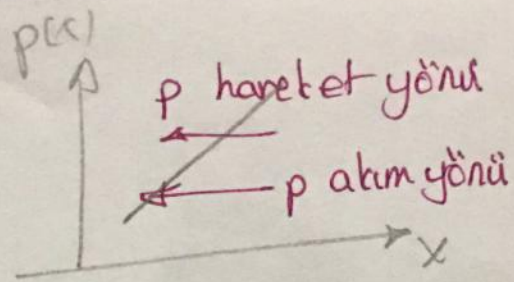 p(x)
p hareket yönü
p akım yönü
x